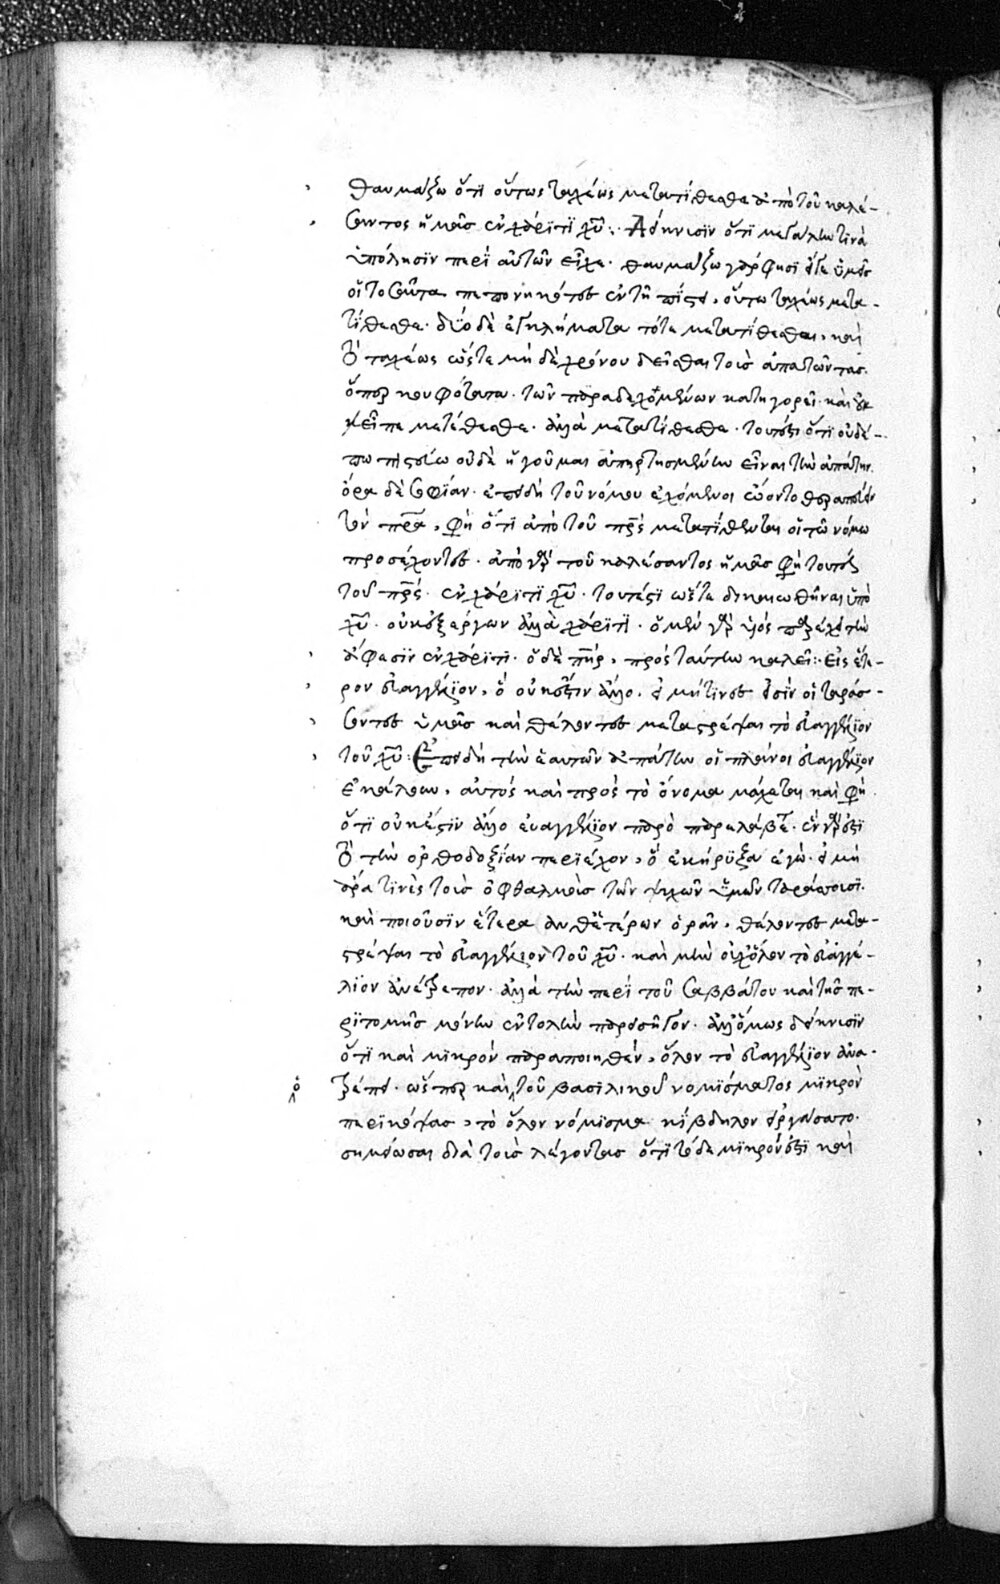 θαυμάζω ὅτι οὕτως ταχέως μετατίθεσθε ἀπὸ τοῦ καλέ-
σαντος ἡμᾶς ἐν χάριτι χυ: Δείκνυσιν ὅτι μεγάλην τινὰ
ὑπόληψιν περὶ αὐτῶν εἶχε. θαυμάζω γάρ φησι
οἱ τοσαῦτα πεπονηκότες ἐν τῇ πίστει, οὕτω ταχέως μετα-
τίθεσθε. δύο δὲ ἐγκλήματα τότε μετατίθεσθαι, καὶ
τὸ ταχέως ὥστε μὴ δὲ χρόνου δεῖσθαι τοὺς ἀπατῶντας.
ὅπερ κουφότητα τῶν παραδεχομένων κατηγορεῖ. καὶ οὐκ
εἶπε μετέθεσθε. ἀλλὰ μετατίθεσθε. τουτέστι ὅτι οὐδέ-
πω πιστεύω οὐδὲ ἡγοῦμαι ἀπηρτισμένην εἶναι τὴν ἀπάτην.
ὅρα δὲ σοφίαν. ἐπειδὴ τοῦ νόμου ἐχόμενοι ᾤοντο θεραπεύειν
τὸν πρα, φη ὅτι ἀπὸ τοῦ πρς μετατίθενται οἱ τῷ νόμω
προσέχοντες. ἀπὸ γὰρ τοῦ καλέσαντος ἡμᾶς φη τουτέστι
τοῦ πρς. ἐν χάριτι χυ. τουτέστι ὥστε δικαιωθῆναι ὑπὸ
χυ. οὐκ ἐξ ἔργων ἀλλὰ χάριτι. ὁ μὲν γὰρ υἱὸς παρέχει τὴν
ἄφεσιν ἐν χάριτι. ὁ δὲ πηρ, πρὸς ταύτην καλεῖ: Εἰς ἕτε-
ρον εὐαγγέλιον, ὃ οὐκ ἔστιν ἄλλο. εἰ μή τινες εἰσὶν οἱ ταράσ-
σοντες ὑμᾶς καὶ θέλοντες μεταστρέψαι τὸ εὐαγγέλιον
τοῦ χυ: Ἐπειδὴ τὴν ἑαυτῶν ἀπάτην οἱ πλάνοι εὐαγγέλιον
ἐκάλουν, αὐτὸς καὶ πρὸς τὸ ὄνομα μάχεται καὶ φη
ὅτι οὐκ ἔστιν ἄλλο εὐαγγέλιον παρὸ παρελάβετε. ἓν γάρ ἐστι
τὸ τὴν ὀρθοδοξίαν περιέχον, ὃ ἐκήρυξα ἐγώ. εἰ μὴ
ἄρα τινὲς τοὺς ὀφθαλμοὺς τῶν ψυχῶν ὑμῶν
καὶ ποιοῦσιν ἕτερα ἀνθ' ἑτέρων ὁρᾶν, θέλοντες μετα-
στρέψαι τὸ εὐαγγέλιον τοῦ χυ. καὶ μὴν οὐχ ὅλον τὸ εὐαγγέ-
λιον ἀνέτρεπον. ἀλλὰ τὴν περὶ τοῦ σαββάτου καὶ τῆς πε-
ριτομῆς μόνην ἐντολὴν παρεισῆγον. ἀλλ' ὅμως δείκνυσιν
ὅτι καὶ μικρὸν παραποιηθὲν, ὅλον τὸ εὐαγγέλιον ἀνα-
τρέπει. ὥσπερ καὶ ὁ τοῦ βασιλικοῦ νομίσματος μικρὸν
περικόψας, τὸ ὅλον νόμισμα κίβδηλον εἰργάσατο.
σημείωσαι διὰ τοὺς λέγοντας ὅτι τόδε μικρόν ἐστι καὶ